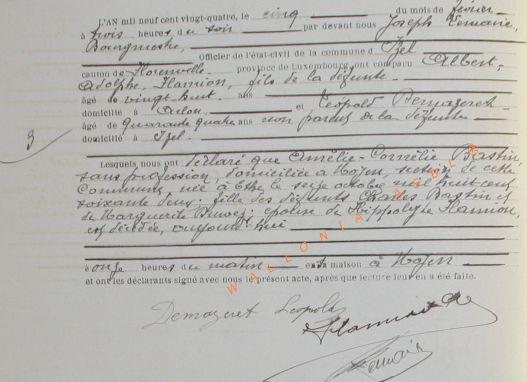 L'AN mil neuf cent vingt-quatre, le cinq du mois de février
à trois heures du soir par devant nous Joseph Lemaire,
Bourgmestre,
Officier de l'état-civil de la commune d'Izel
canton de Florenville province de Luxembourg, ont comparu Albert-
Adolphe Hannion, fils de la défunte
âgé de vingt huit ans
domicilié à Arlon et Léopold Demazeret
âgé de Quarante quatre ans non parent de la défunte
domicilié à Izel
3
Lesquels nous ont déclaré que Amélie-Cornélie Bastin,
sans profession, domiciliée à Moyen, section de cette
Commune, née à Ethe le seize octobre mil huit cent
soixante deux, fille des défunts Charles Bastin et
de Marguerite épouse de Hippolyte Hannion,
est décédée, aujourd'hui
à onze heures du matin en sa maison à Moyen
et ont les déclarants signé avec nous le présent acte, après que lecture leur en a été faite.
WALLONIA ASBL
Demazeret Léopold
Hannion A
Lemaire